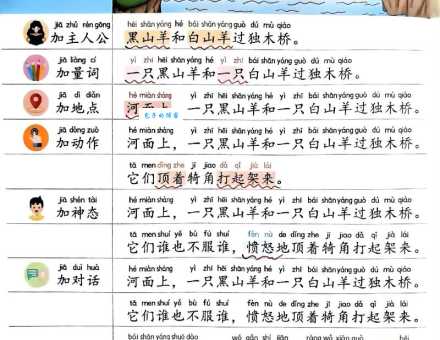 jiā zhǔ rén gōng hēi shān yáng hé bái shān yáng guò dú mù qiáo
加主人公 黑山羊和白山羊过独木桥。
jiā liàng cí yì zhī hēi shān yáng hé yì zhī bái shān yáng guò dú mù qiáo
加量词 一只黑山羊和一只白山羊过独木桥。
jiā dì diǎn hé miàn shàng yì zhī hēi shān yáng hé yì zhī bái shān yáng guò dú mù qiáo
加地点 河面上，一只黑山羊和一只白山羊过独木桥。
jiā dòng zuò hé miàn shàng yì zhī hēi shān yáng hé yì zhī bái shān yáng guò dú mù qiáo
加动作 河面上，一只黑山羊和一只白山羊过独木桥。
tā men dǐng zhe jī jiǎo dǎ qǐ jià lái
它们顶着犄角打起架来。
jiā shén tài hé miàn shàng yì zhī hēi shān yáng hé yì zhī bái shān yáng guò dú mù qiáo
加神态 河面上，一只黑山羊和一只白山羊过独木桥。
tā men shuí yě bù fú shuí fèn nù de dǐng zhe jī jiǎo dǎ qǐ jià lái
它们谁也不服谁，愤怒地顶着犄角打起架来。
jiā duì huà hé miàn shàng yì zhī hēi shān yáng hé yì zhī bái shān yáng guò dú mù qiáo
加对话 河面上，一只黑山羊和一只白山羊过独木桥。
tā men shuí yě bù fú shuí fèn nù de dǐng zhe jī jiǎo dǎ qǐ jià lái
它们谁也不服谁，愤怒地顶着犄角打起架来。